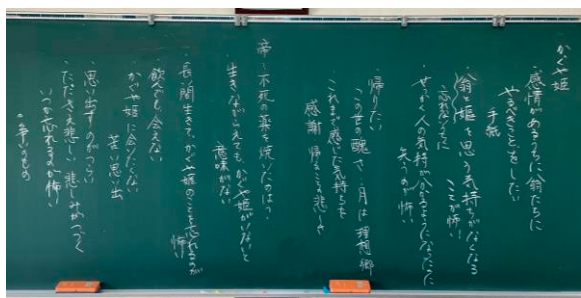 かぐや姫
・感情があるうちに、翁たちに
やるべきことをしたい
手紙
・翁と嫗を思う気持ちがなくなる
忘れないように
ことが怖い
・せっかく人の気持ちが分かるようになったのに
失うのが怖い
・帰りたい
この世の醜さ 月は理想郷
・これまで感じた気持ちを
感謝 帰ること 悲しさ
帝 不死の薬を焼いたのは?
・生きながらえても、かぐや姫がいないと
意味がない
・長い間生きて、かぐや姫のことを忘れるのが
怖い
・飲んでも会えない
かぐや姫に会いたくない
苦い思い出
・思い出すのがつらい
・ただでさえ悲しい 悲しみがつづく
いつか忘れるのが怖い